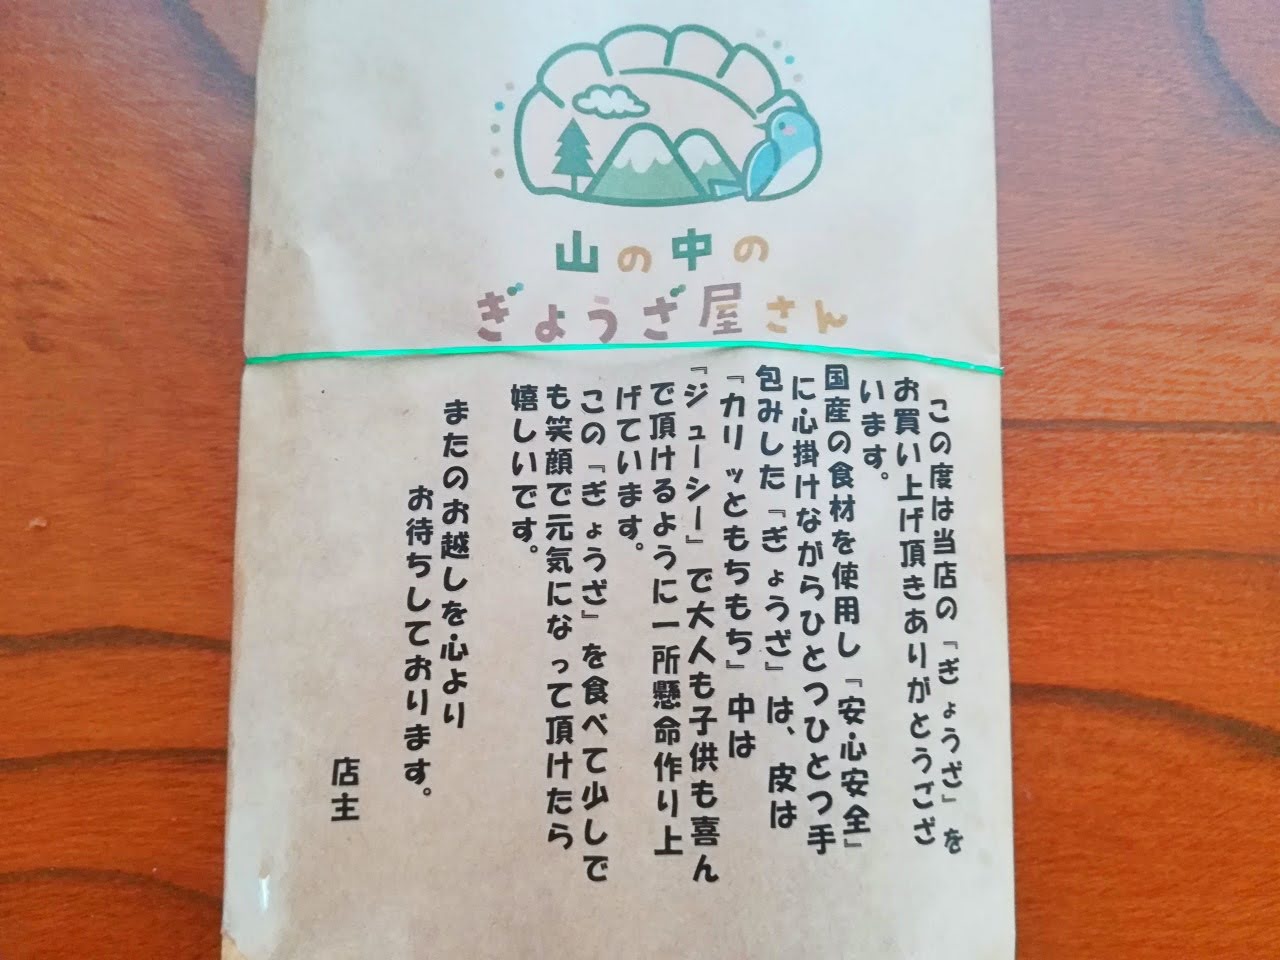 山の中の
ぎょうざ屋さん
この度は当店の『ぎょうざ』を
お買い上げ頂きありがとうござ
います。
国産の食材を使用し『安心安全』
に心掛けながらひとつひとつ手
包みした『ぎょうざ』は、皮は
『カリッともちもち』中は
『ジューシー』で大人も子供も喜ん
で頂けるように一所懸命作り上
げています。
この『ぎょうざ』を食べて少しで
も笑顔で元気になって頂けたら
嬉しいです。
またのお越しを心より
お待ちしております。
店主